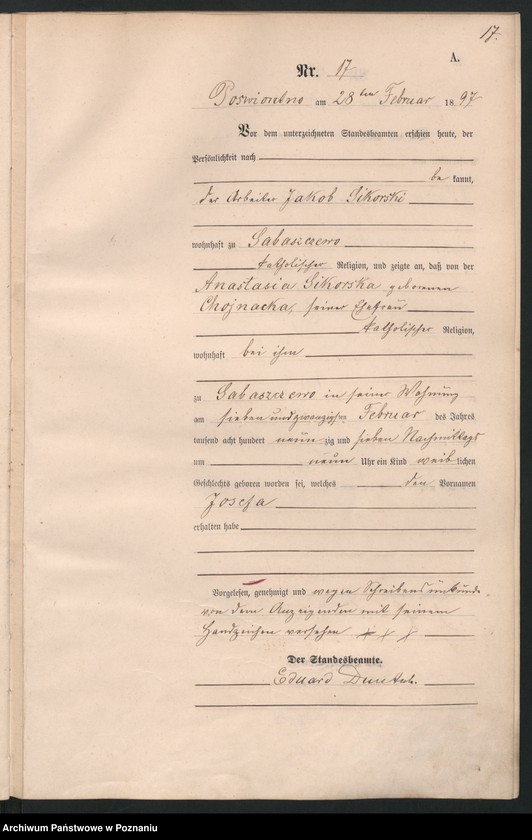 17.
A.
Nr. 17
Poswiontno am 28ten Februar 1897
Vor dem unterzeichneten Standesbeamten erschien heute, der
Persönlichkeit nach
be kannt,
der Arbeiter Jakob Sikorski
wohnhaft zu Gabaszewo
katholischer Religion, und zeigte an, daß von der
Anastasia Sikorska geborenen
Chojnacka, seiner Ehefrau
katholischer Religion,
wohnhaft bei ihm
zu Gabaszewo in seiner Wohnung
am sieben und zwanzigsten Februar des Jahres
tausend acht hundert neun zig und sieben Nachmittags
um neun Uhr ein Kind weib lichen
Geschlechts geboren worden sei, welches den Vornamen
Josefa
erhalten habe
Vorgelesen, genehmigt und wegen Schreibensunkunde
von dem Anzeigenden mit seinem
Handzeichen versehen + + +
Der Standesbeamte.
Eduard
Archiwum Państwowe w Poznaniu